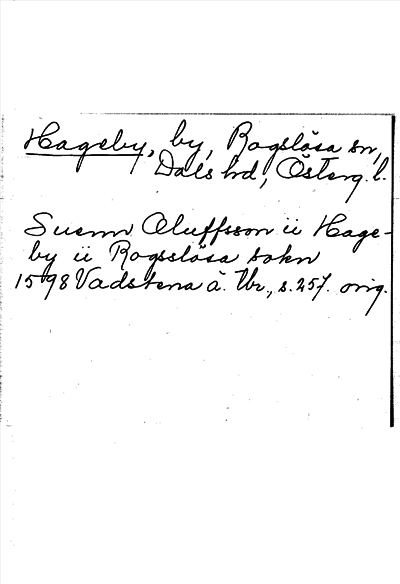 Hageby, by, Rogslösa sn,
Dals hd, Österg. l.
Suenn Oluffsson ii Hage-
by ii Rogsslösa sokn
1598 Vadstena ä. Ur., s. 257. orig.